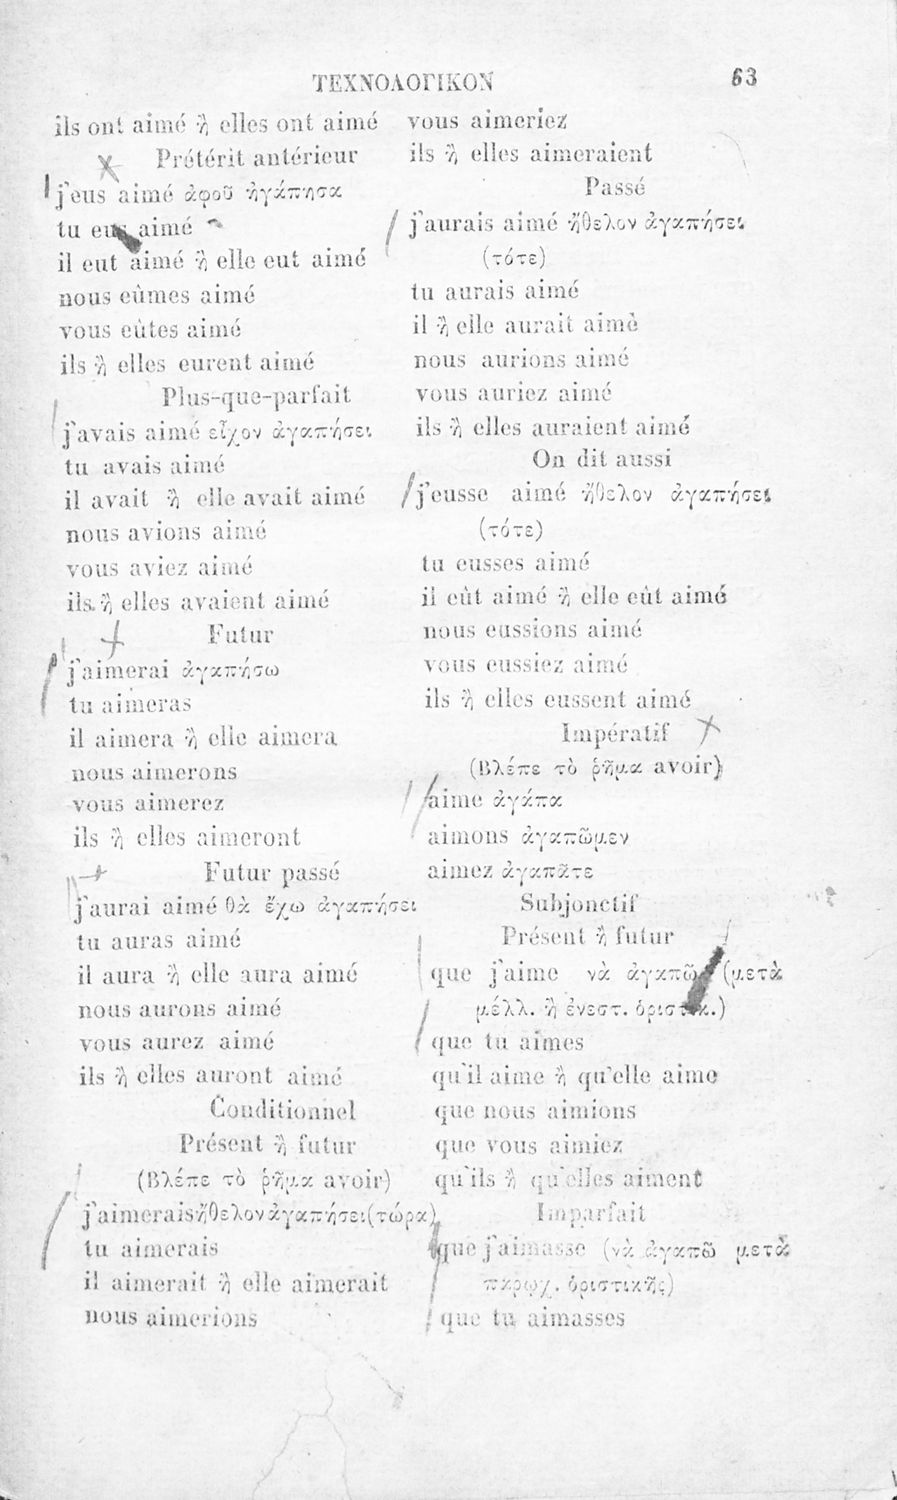 ΤΕΧΝΟΛΟΓΙΚΟΝ 63
ils ont aimé ἢ elles ont aimé
Prétérit antérieur
j'eus aimé ἀφοῦ ἠγάπησα
tu eus aimé
il eut aimé ἢ elle eut aimé
nous eûmes aimé
vous eûtes aimé
ils ἢ elles eurent aimé
Plus-que-parfait
j'avais aimé εἶχον ἀγαπήσει
tu avais aimé
il avait ἢ elle avait aimé
nous avions aimé
vous aviez aimé
ils ἢ elles avaient aimé
Futur
j'aimerai ἀγαπήσω
tu aimeras
il aimera ἢ elle aimera
nous aimerons
vous aimerez
ils ἢ elles aimeront
Futur passé
j'aurai aimé θὰ ἔχω ἀγαπήσει
tu auras aimé
il aura ἢ elle aura aimé
nous aurons aimé
vous aurez aimé
ils ἢ elles auront aimé
Conditionnel
Présent ἢ futur
(Βλέπε τὸ ῥῆμα avoir)
j'aimerais ἤθελον ἀγαπήσει (τώρα)
tu aimerais
il aimerait ἢ elle aimerait
nous aimerions
vous aimeriez
ils ἢ elles aimeraient
Passé
j'aurais aimé ἤθελον ἀγαπήσει
(τότε)
tu aurais aimé
il ἢ elle aurait aimè
nous aurions aimé
vous auriez aimé
ils ἢ elles auraient aimé
On dit aussi
j'eusse aimé ἤθελον ἀγαπήσει
(τότε)
tu eusses aimé
il eût aimé ἢ elle eût aimé
nous eussions aimé
vous eussiez aimé
ils ἢ elles eussent aimé
Impératif
(Βλέπε τὸ ῥῆμα avoir)
aime ἀγάπα
aimons ἀγαπῶμεν
aimez ἀγαπᾶτε
Subjonctif
Présent ἢ futur
que j'aime νὰ ἀγαπῶ (μετὰ
μέλλ. ἢ ἐνεστ. ὁριστικ.)
que tu aimes
qu'il aime ἢ qu'elle aime
que nous aimions
que vous aimiez
qu'ils ἢ qu'elles aiment
Imparfait
que j'aimasse (νὰ ἀγαπῶ μετὰ
παρῳχ. ὁριστικῆς)
que tu aimasses